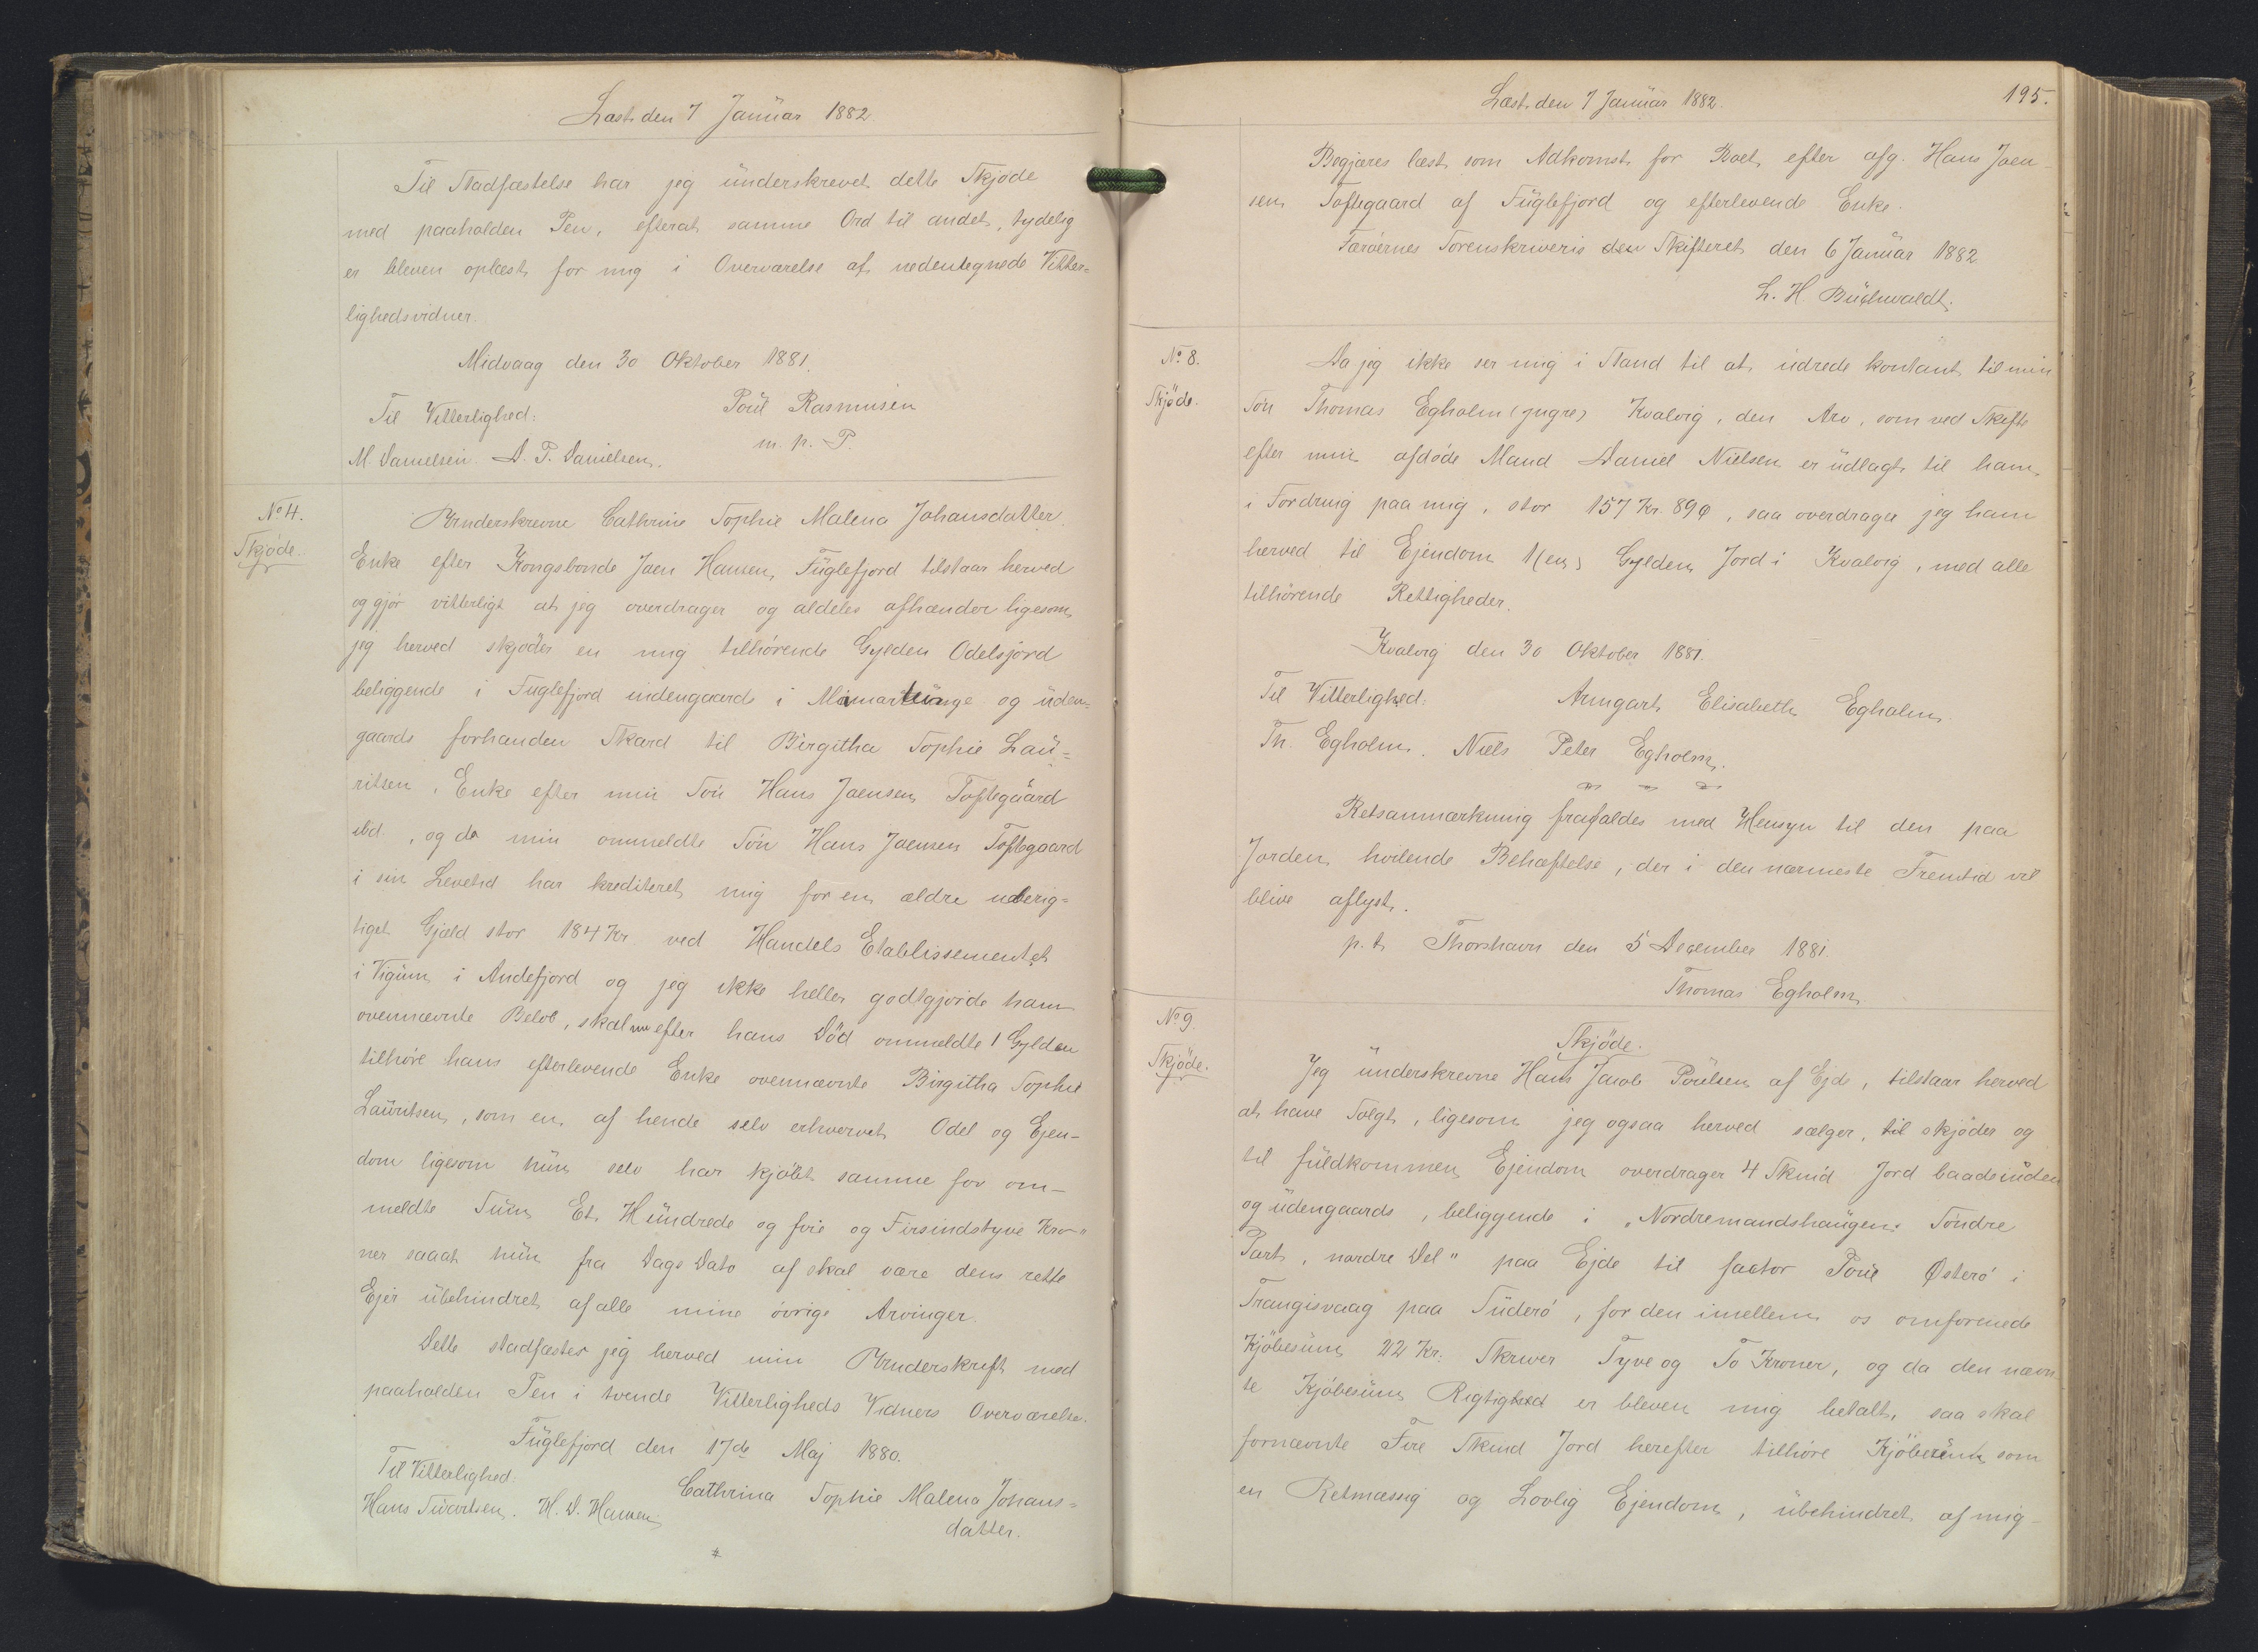 Læst den 7 Januar 1882.
Til Stadfæstelse har jeg underskrevet dette Skjøde
med paaholden Pen, efterat samme Ord til andet, tydelig
er bleven oplæst for mig i Overværelse af nedentegnede Vitter=
lighedsvidner.
Midvaag den 30 Oktober 1881.
Til Vitterlighed: Poul Rasmusen
M. Danielsen. D. P. Danielsen. m. p. P.
No 4.
Skjøde.
Underskrevne Cathrine Sophie Malena Johansdatter
Enke efter Kongsbonde Joen Hansen, Fuglefjord tilstaar herved
og gjør vitterligt at jeg overdrager og aldeles afhænder ligesom
jeg herved skjøder en mig tilhørende Gylden Odelsjord
beliggende i Fuglefjord indengaards i og uden=
gaards forhanden Skard til Birgitha Sophie Lau=
ritsen, Enke efter min Søn Hans Joensen Toftegaard
ibd., og da min ommeldte Søn Hans Joensen Toftegaard
i sin Levetid har krediteret mig for en ældre uberig=
tiget Gjæld stor 184 Kr. ved Handels Etablissementet
i Vigum i Andefjord og jeg ikke heller godtgjorde ham
ovennævnte Beløb, skal nu efter hans Död ommeldte 1 Gylden
tilhøre hans efterlevende Enke ovennævnte Birgitha Sophie
Lauritsen, som en af hende selv erhvervet Odel og Ejen-
dom ligesom hun selv har kjøbt samme for om-
meldte Sum Et Hundrede og fire og Firsindstyve Kro-
ner saaat hun fra Dags Dato af skal være dens rette
Ejer ubehindret af alle mine øvrige Arvinger.
Dette stadfæster jeg herved min Underskrift med
paaholden Pen i tvende Vitterligheds Vidners Overværelse.
Fuglefjord den 17de Maj 1880.
Til Vitterlighed: Cathrina Sophie Malena Johans=
Hans Sivertsen. H. D. Hansen datter.
Læst den 7 Januar 1882. 195.
Begjæres læst som Adkomst for Boet efter afg. Hans Joen-
sen Toftegaard af Fuglefjord og efterlevende Enke.
Færøernes Sorenskriveris den Skifteret den 6 Januar 1882
L. H. Buchwaldt.
No 8.
Skjøde.
Da jeg ikke ser mig i Stand til at udrede kontant til min
Søn Thomas Egholm (yngre) Kvalvig, den Arv, som ved Skifte
efter min afdøde Mand Daniel Nielsen er udlagt til ham
i Fordring paa mig, stor 157 Kr. 89 Ø, saa overdrager jeg ham
herved til Ejendom 1(en) Gylden Jord i Kvalvig, med alle
tilhørende Rettigheder.
Kvalvig den 30 Oktober 1881.
Til Vitterlighed: Armgart Elisabeth Egholm
Th. Egholm. Niels Peter Egholm.
Retsanmærkning frafaldes med Hensyn til den paa
Jorden hvilende Behæftelse, der i den nærmeste Fremtid vil
blive aflyst.
p. t. Thorshavn den 5 December 1881.
Thomas Egholm
No 9.
Skjøde.
Skjøde.
Jeg underskrevne Hans Jacob Poulsen af Ejde, tilstaar herved
at have Solgt, ligesom jeg ogsaa herved sælger, til skjøder og
til fuldkommen Ejendom overdrager 4 Skind Jord baade inden
og udengaards, beliggende i "Nordremandshaugen. Søndre
Part, nordre Del" paa Ejde til factor Poul Østerø i
Trangisvaag paa Suderø, for den imellem os omforenede
Kjøbesum 22 Kr. Skriver Tyve og To Kroner, og da den nævn
te Kjøbesum Rigtighed er bleven mig betalt, saa skal
fornævnte Fire Skind Jord herefter tilhøre som
en Retmæssig og Lovlig Ejendom, ubehindret af mig-